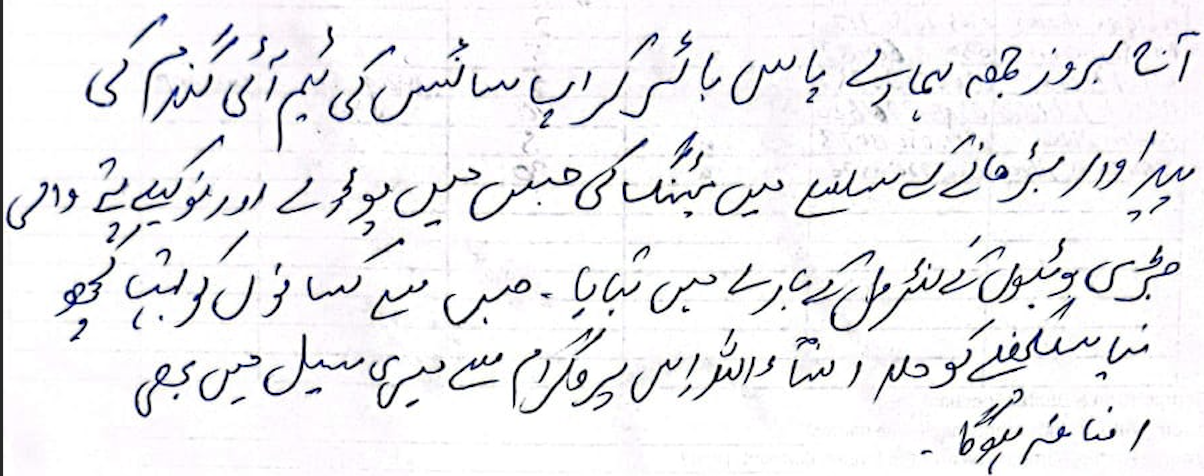 آج بروز جمعہ ہمارے پاس بائر کراپ سائنس کی ٹیم آئی گندم کی
پیداوار بڑھانے کے سلسلے میں میٹنگ کی جس میں چوڑے اور نوکیلے پتے والی
جڑی بوٹیوں کے کنٹرول کے بارے میں بتایا۔ جس سے کسانوں کو بہت کچھ
نیا سیکھنے کو ملا انشاءاللہ اس پروگرام سے میری سیل میں بھی
اضافہ ہوگا۔